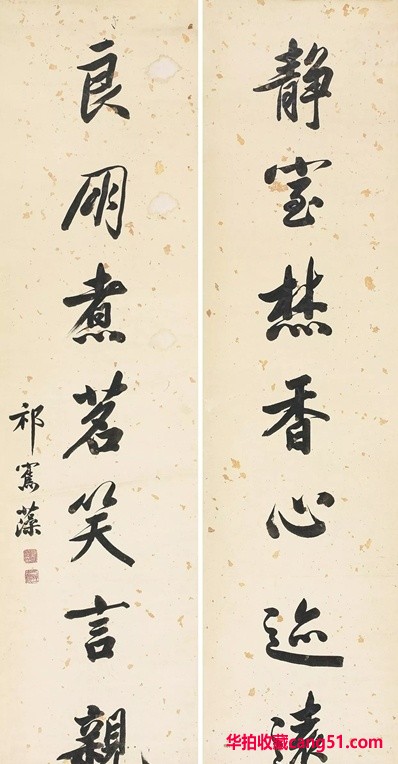 静室焚香心迹遠
良朋煮茗笑言親
祁寯藻
华拍收藏cang51.com